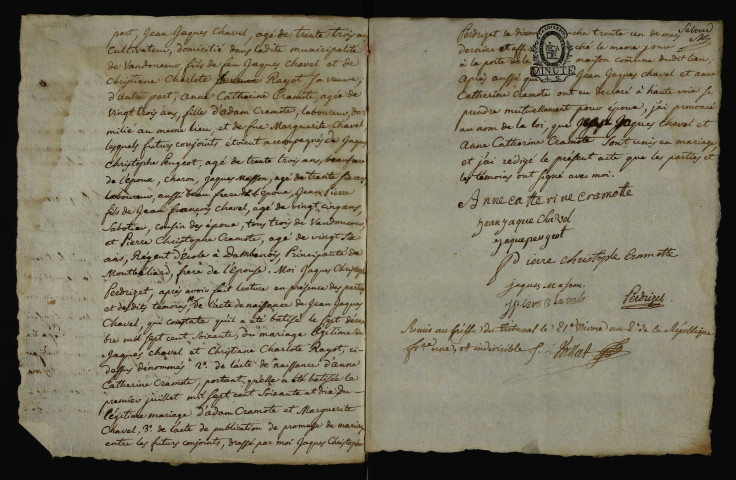 part, Jean Jaques Chavel, agé de trente trois ans
Cultivateur, domicilié dans ladite municipalité
de Vandoncourt fils de feu Jaques Chavel et de
Chrystiane Charlote Rayot sa veuve,
d'autre part, anne Catherine Cramote, agée de
Vingt trois ans, fille d'adam Cramote, laboureur, do-
micilié au meme lieu, et de fue Marguerite Chavel,
lesquels futurs conjoints etoient accompagnés de Jaques
Christophe Peugeot, agé de trente trois ans, beaufrere
de l'epoux, charon, Jaques Masson, agé de trente six ans
laboureur, aussi beau frere de l'Epoux, Jean Pierre
fils de Jean francois Chavel, agé de vingt cinq ans,
Sabotier, cousin des epoux, tous trois de Vandoncourt
et Pierre Christophe Cramote, agé de vingt six
ans, Regent d'Ecole à Dambenois, Principauté de
Montbeliard, frere de l'Epouse. Moi Jaques Christophe
Perdrizet, après avoir fait lecture en presence des parties
et desdits temoins, 1o. de l'acte de naissance de Jean Jaques
Chavel, qui constate qu'il a été batisé le sept decem-
bre mil sept cent soixante, du mariage legitime de
Jaques Chavel et Christiane Charlote Rayot, ci-
dessus denommés 2o. de l'acte de naissance d'anne
Catherine Cramote, portant, qu'elle a été batisée le
premier juillet mil sept cent soixante et dix du
legitime mariage d'adam Cramote et Marguerite
Chavel, 3o. de l'acte de publication de promesse de mariage
entre les futurs conjoints, dressé par moi Jaques Christophe
Perdrizet le dimanche trente un de mars
dernier et affiché le meme jour
à la porte de la maison comune dudit lieu,
Après aussi que Jean Jaques Chavel et anne
Catherine Cramote ont eu declaré à haute voix se
prendre mutuellement pour epoux, j'ai prononcé
au nom de la loi, que Jean Jaques Chavel et
Anne Catherine Cramote sont unis en mariage
et j'ai redigé le present acte que les parties et
les temoins ont signé avec moi.
MINUTE
Anne catterine cramotte
jean jaque chavel
jaque peugeot
Pierre christople Cramotte
jaques Masson
Perdrizet
Remis au Greffe du tribunal le 21e. Nivose an 2e. de la République
fse. une et indivisible